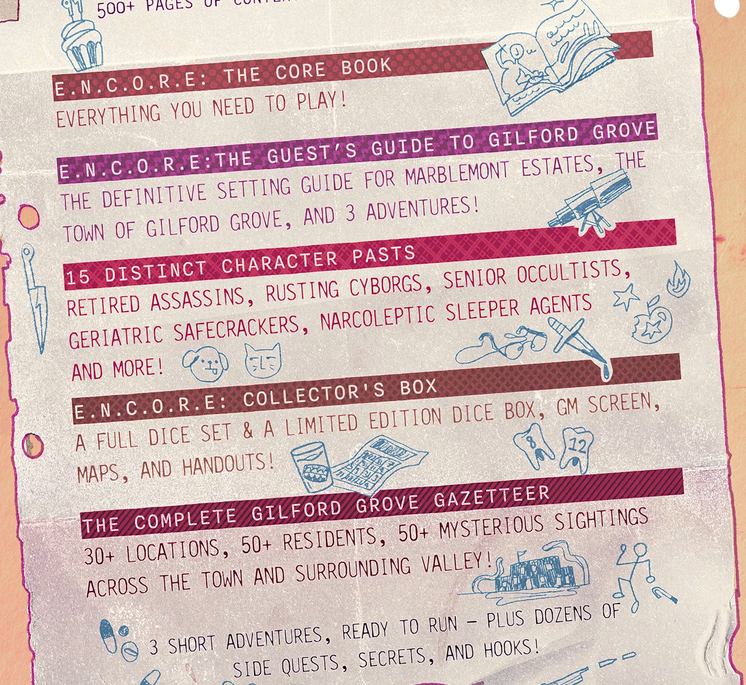 500+ PAGES OF
E.N.C.O.R.E: THE CORE BOOK
EVERYTHING YOU NEED TO PLAY!
E.N.C.O.R.E:THE GUEST'S GUIDE TO GILFORD GROVE
THE DEFINITIVE SETTING GUIDE FOR MARBLEMONT ESTATES, THE
TOWN OF GILFORD GROVE, AND 3 ADVENTURES!
15 DISTINCT CHARACTER PASTS
RETIRED ASSASSINS, RUSTING CYBORGS, SENIOR OCCULTISTS,
GERIATRIC SAFECRACKERS, NARCOLEPTIC SLEEPER AGENTS
AND MORE!
E.N.C.O.R.E: COLLECTOR'S BOX
A FULL DICE SET & A LIMITED EDITION DICE BOX, GM SCREEN,
MAPS, AND HANDOUTS!
8 12
THE COMPLETE GILFORD GROVE GAZETTEER
30+ LOCATIONS, 50+ RESIDENTS, 50+ MYSTERIOUS SIGHTINGS
ACROSS THE TOWN AND SURROUNDING VALLEY!
3 SHORT ADVENTURES, READY TO RUN – PLUS DOZENS OF
SIDE QUESTS, SECRETS, AND HOOKS!